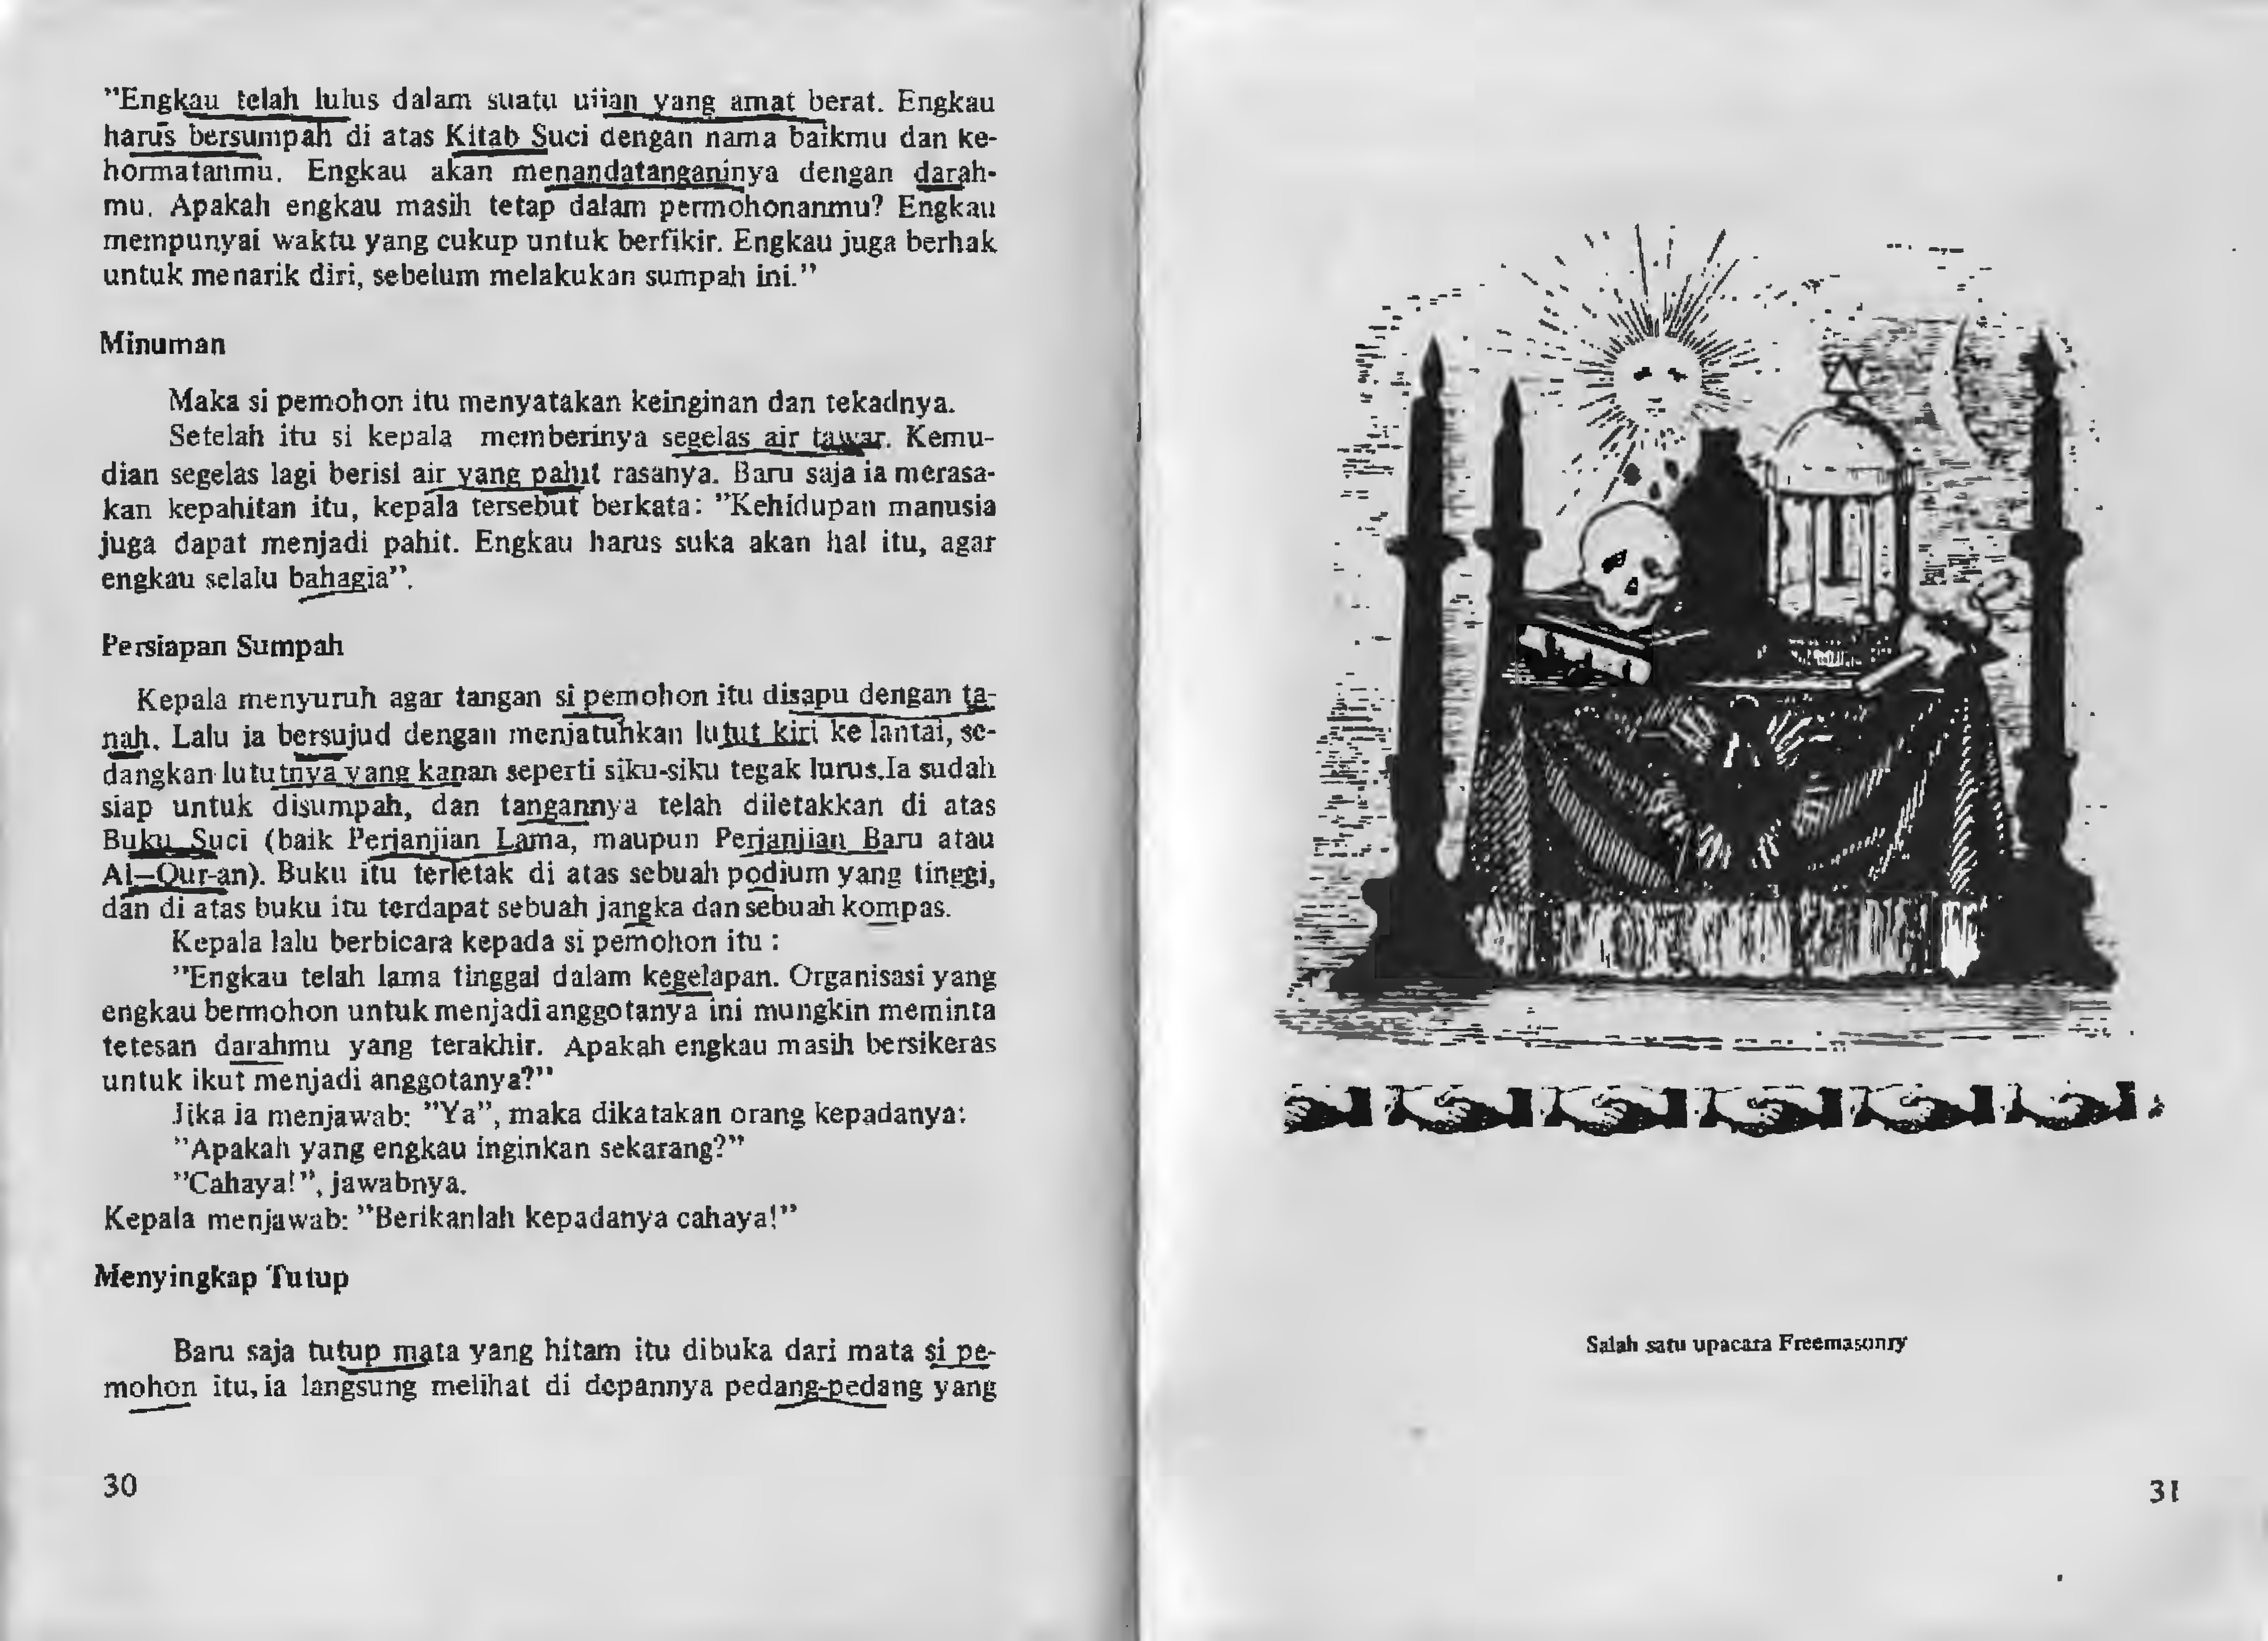 ”Engkau telah lulus dalam suatu ujian yang amat berat. Engkau
harus bersumpah di atas Kitab Suci dengan nama baikmu dan ke-
hormatanmu. Engkau akan menandatanganinya dengan darah-
mu. Apakah engkau masih tetap dalam permohonanmu? Engkau
mempunyai waktu yang cukup untuk berfikir. Engkau juga berhak
untuk menarik diri, sebelum melakukan sumpah ini.”
Minuman
Maka si pemohon itu menyatakan keinginan dan tekadnya.
Setelah itu si kepala memberinya segelas air tawar. Kemu-
dian segelas lagi berisi air yang pahit rasanya. Baru saja ia merasa-
kan kepahitan itu, kepala tersebut berkata: ”Kehidupan manusia
juga dapat menjadi pahit. Engkau harus suka akan hal itu, agar
engkau selalu bahagia”.
Persiapan Sumpah
Kepala menyuruh agar tangan si pemohon itu disapu dengan ta-
nah. Lalu ia bersujud dengan menjatuhkan lutut kiri ke lantai, se-
dangkan lututnya yang kanan seperti siku-siku tegak lurus.Ia sudah
siap untuk disumpah, dan tangannya telah diletakkan di atas
Buku Suci (baik Perjanjian Lama, maupun Perjanjian Baru atau
Al—Qur-an). Buku itu terletak di atas sebuah podium yang tinggi,
dan di atas buku itu terdapat sebuah jangka dan sebuah kompas.
Kepala lalu berbicara kepada si pemohon itu :
”Engkau telah lama tinggal dalam kegelapan. Organisasi yang
engkau bermohon untuk menjadi anggotanya ini mungkin meminta
tetesan darahmu yang terakhir. Apakah engkau masih bersikeras
untuk ikut menjadi anggotanya?”
Jika ia menjawab: ”Ya”, maka dikatakan orang kepadanya:
”Apakah yang engkau inginkan sekarang?”
”Cahaya!”, jawabnya.
Kepala menjawab: ”Berikanlah kepadanya cahaya!”
Menyingkap Tutup
Baru saja tutup mata yang hitam itu dibuka dari mata si pe-
mohon itu, ia langsung melihat di depannya pedang-pedang yang
30
Salah satu upacara Freemasonry
31